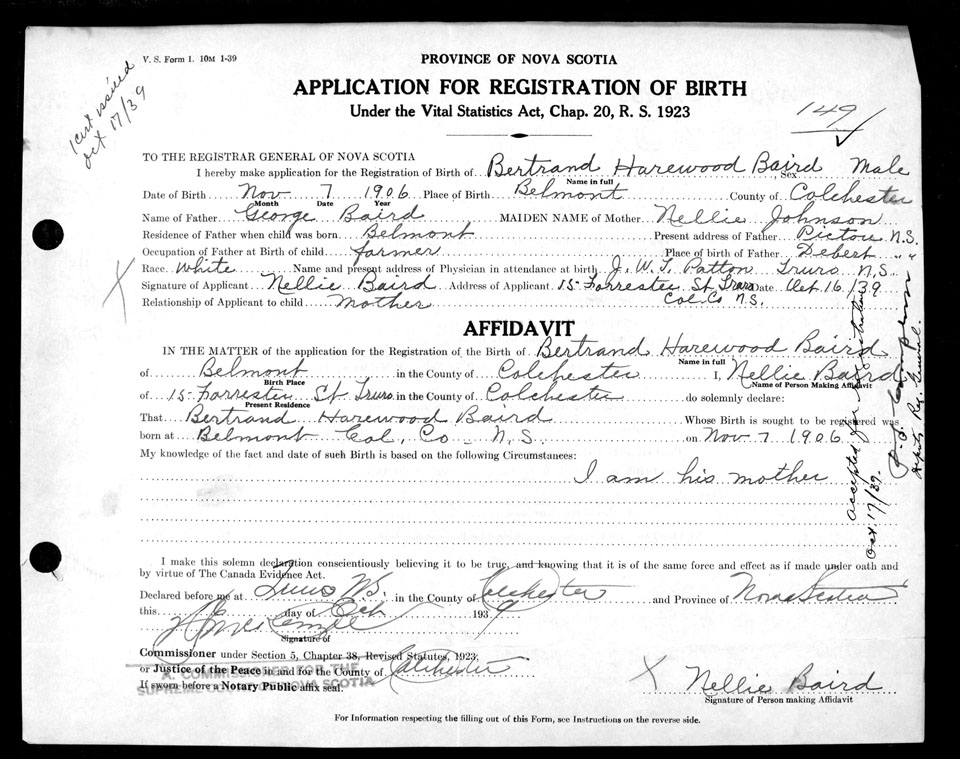 V. S. Form 1. 10M 1-39
1 cert issued
Oct 17/39
PROVINCE OF NOVA SCOTIA
APPLICATION FOR REGISTRATION OF BIRTH
Under the Vital Statistics Act, Chap. 20, R. S. 1923
149
TO THE REGISTRAR GENERAL OF NOVA SCOTIA
I hereby make application for the Registration of Birth of Bertrand Harewood Baird Sex Male
Name in full
Date of Birth Nov 7 1906 Place of Birth Belmont County of Colchester
Month Date Year
Name of Father George Baird MAIDEN NAME of Mother Nellie Johnson
Residence of Father when child was born Belmont Present address of Father Pictou N.S.
Occupation of Father at Birth of child farmer Place of birth of Father Debert " "
Race White Name and present address of Physician in attendance at birth J. W. T. Patton Truro N.S.
Signature of Applicant Nellie Baird Address of Applicant 15 Forrester St Truro Date Oct 16/39
Col. Co N.S.
Relationship of Applicant to child mother
AFFIDAVIT
IN THE MATTER of the application for the Registration of the Birth of Bertrand Harewood Baird
Name in full
of Belmont in the County of Colchester I, Nellie Baird
Birth Place Name of Person Making Affidavit
of 15 Forrester St Truro in the County of Colchester do solemnly declare:
Present Residence
That Bertrand Harewood Baird Whose Birth is sought to be registered was
born at Belmont Col. Co N.S. on Nov 7 1906
My knowledge of the fact and date of such Birth is based on the following Circumstances:
I am his mother
accepted for registration
Oct. 17/39.
Dep'ty Reg. General.
I make this solemn declaration conscientiously believing it to be true, and knowing that it is of the same force and effect as if made under oath and
by virtue of The Canada Evidence Act.
Declared before me at Truro N.S. in the County of Colchester and Province of Nova Scotia
this 16 day of Oct 1939
Signature of
Commissioner under Section 5, Chapter 38, Revised Statutes, 1923,
or Justice of the Peace in and for the County of Colchester
A COMMISSIONER FOR THE
SUPREME COURT OF NOVA SCOTIA
If sworn before a Notary Public affix seal.
X Nellie Baird
Signature of Person making Affidavit
For Information respecting the filling out of this Form, see Instructions on the reverse side.